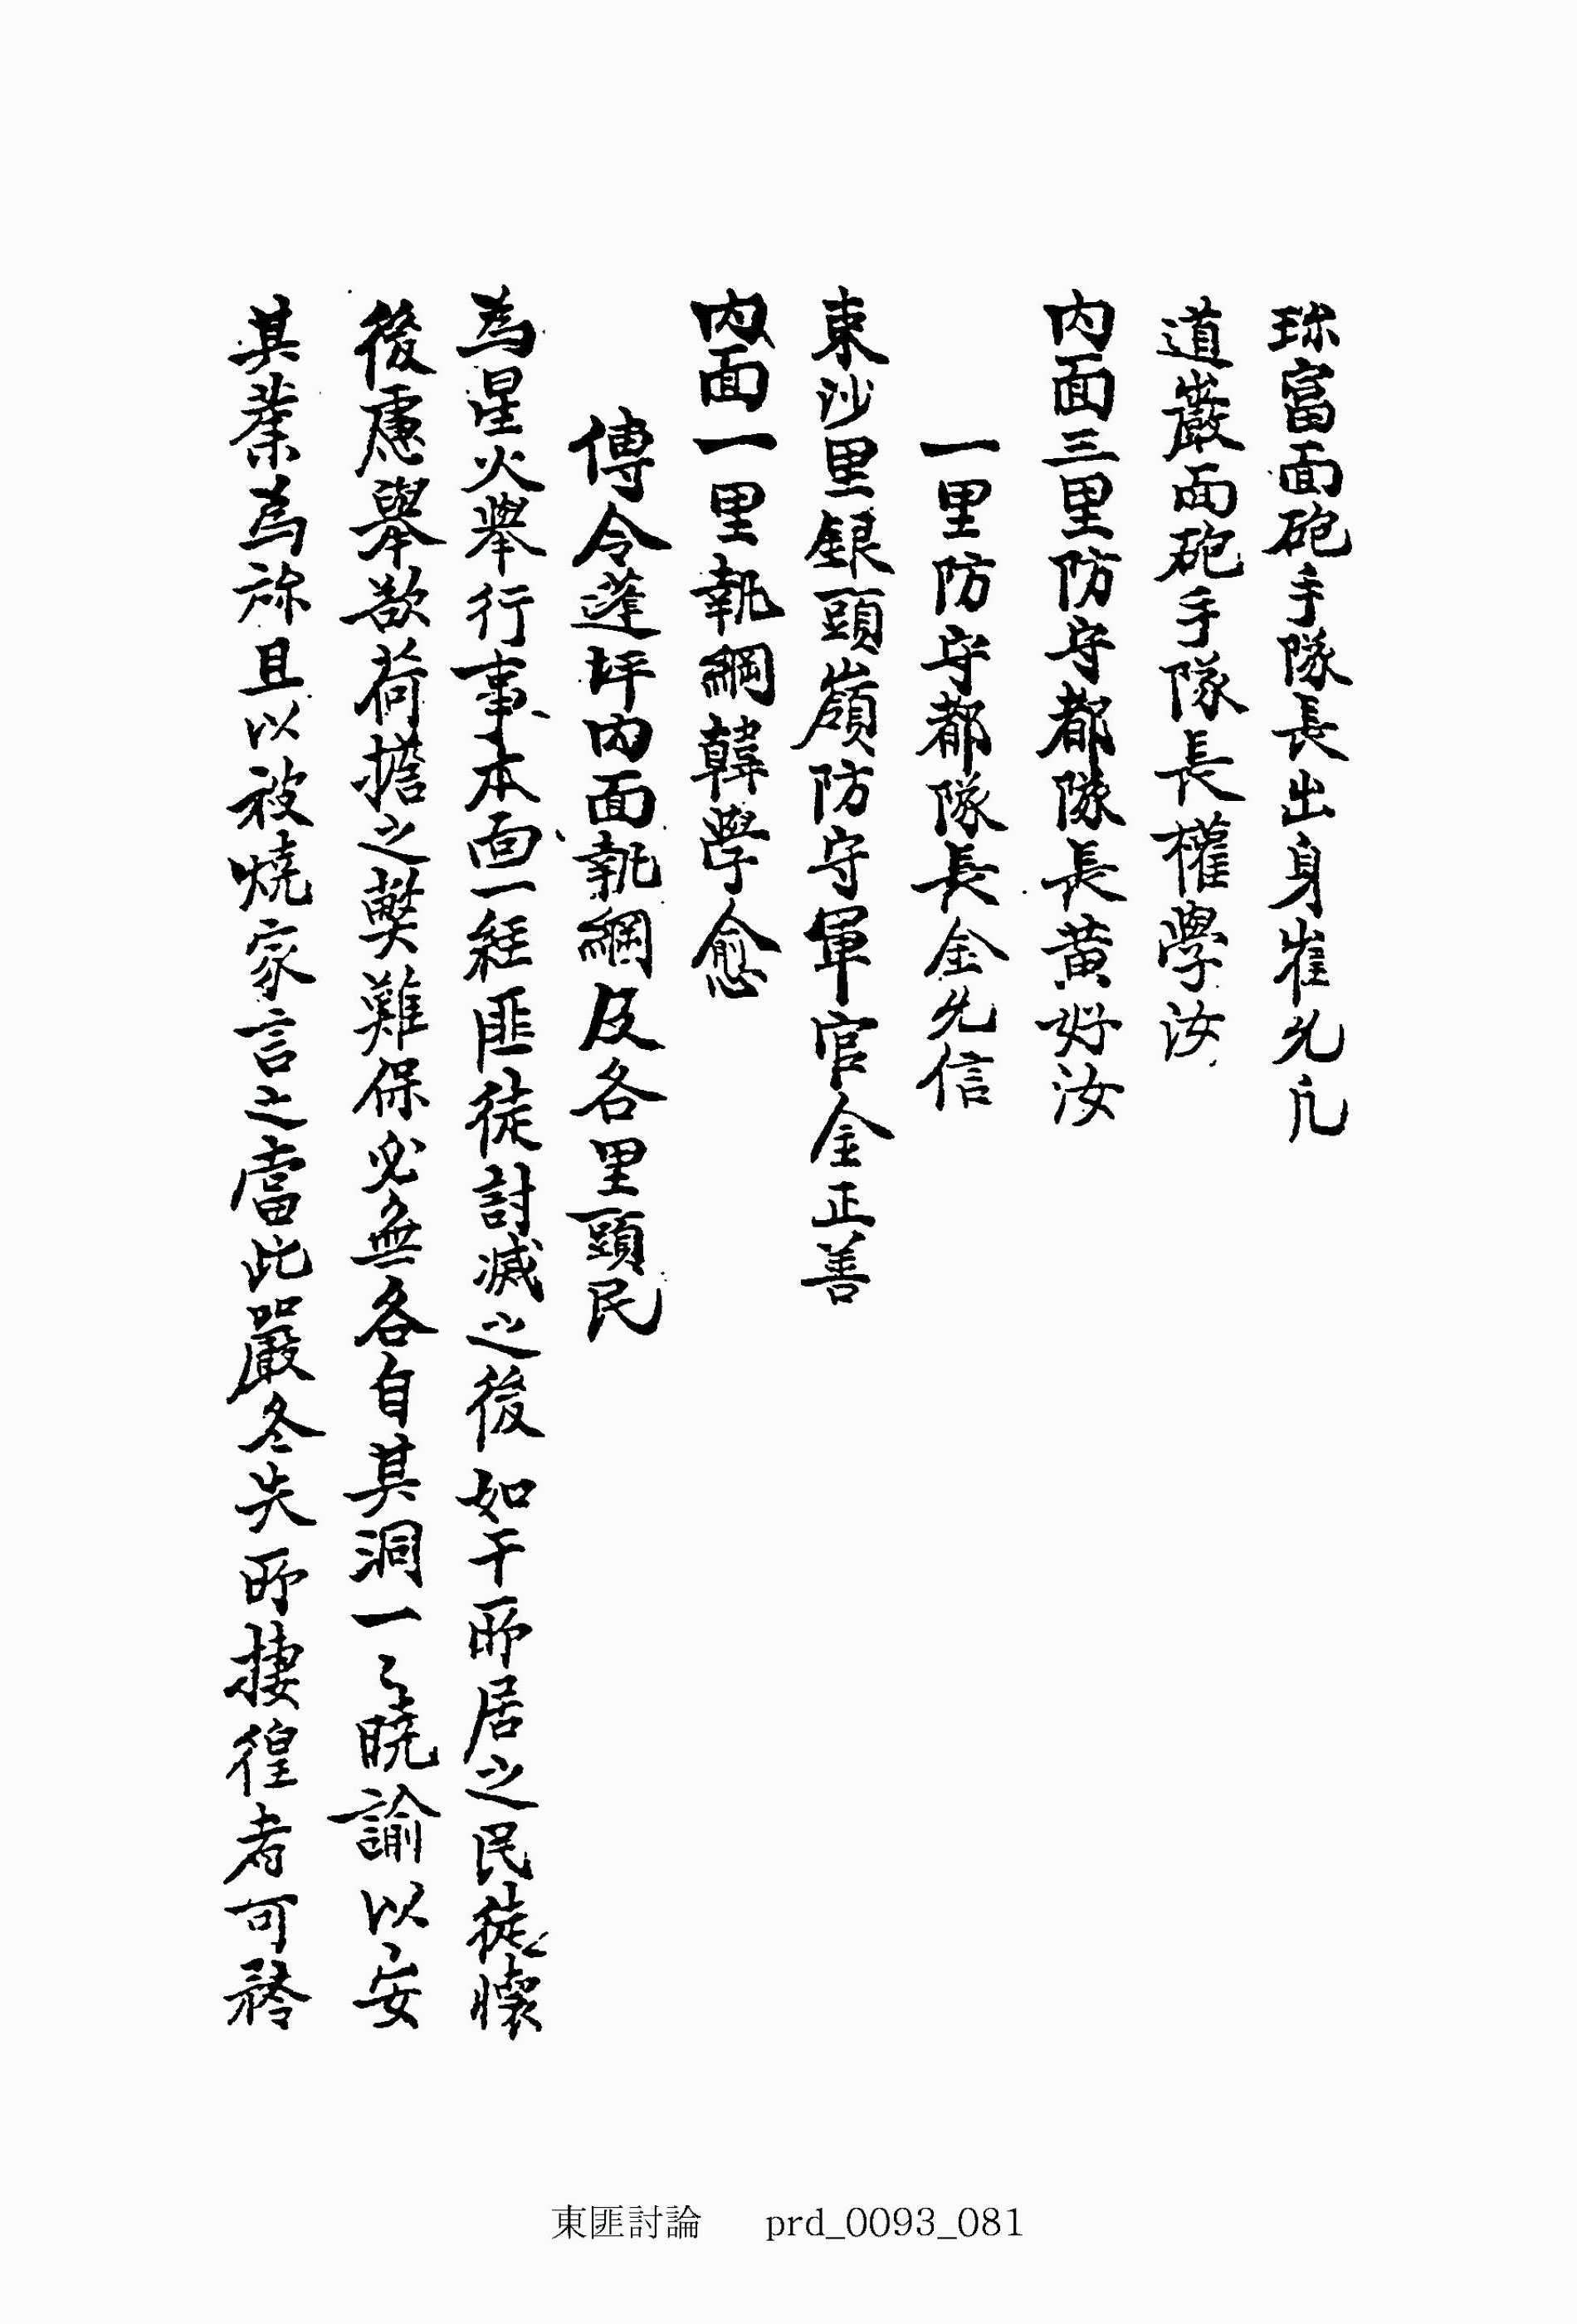 珎富面砲手隊長出身崔允凡
道巖面砲手隊長權學汝
內面三里防守都隊長黃好汝
一里防守都隊長金允信
東沙里銀頭嶺防守軍官金正善
內面一里執綱韓學愈
傳令蓬坪內面執綱及各里頭民
為星火擧行事本面一經匪徒討滅之後如干所居之民徒懷
後慮擧欲荷擔之弊難保必無各自其洞一々曉諭以安
其業為旀且以被燒家言之當此嚴冬失所棲徨者可矜
東匪討論 prd_0093_081